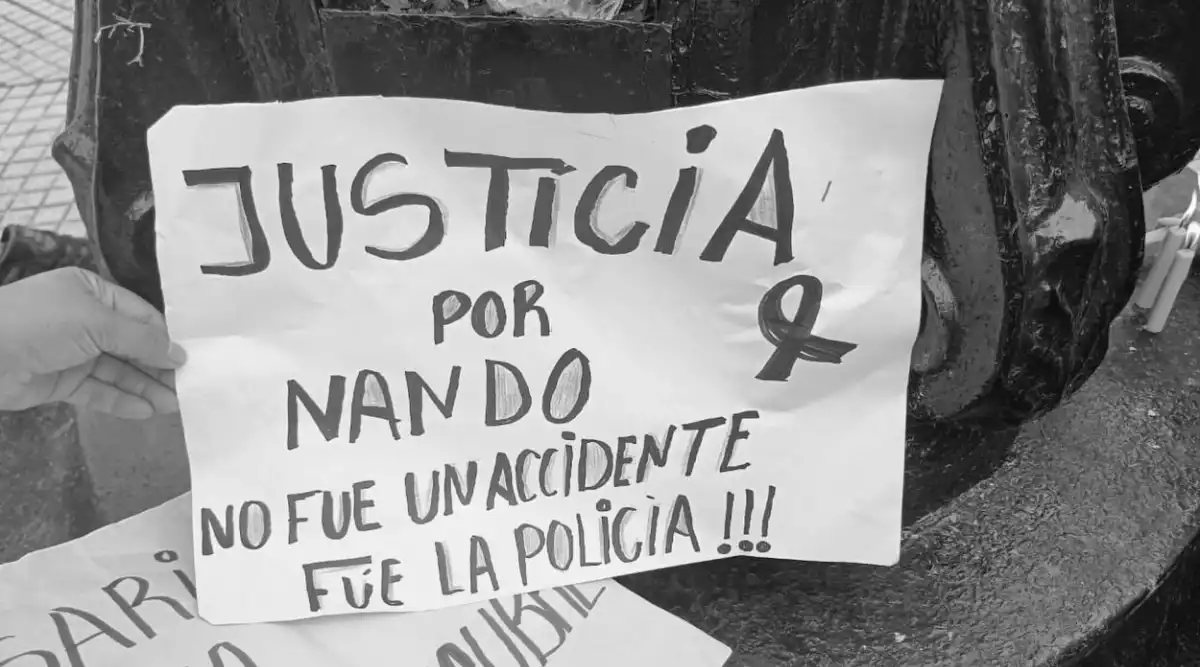 JUSTICIA
POR
NANDO
NO FUE UN ACCIDENTE
FUE LA POLICÍA !!!
SARI